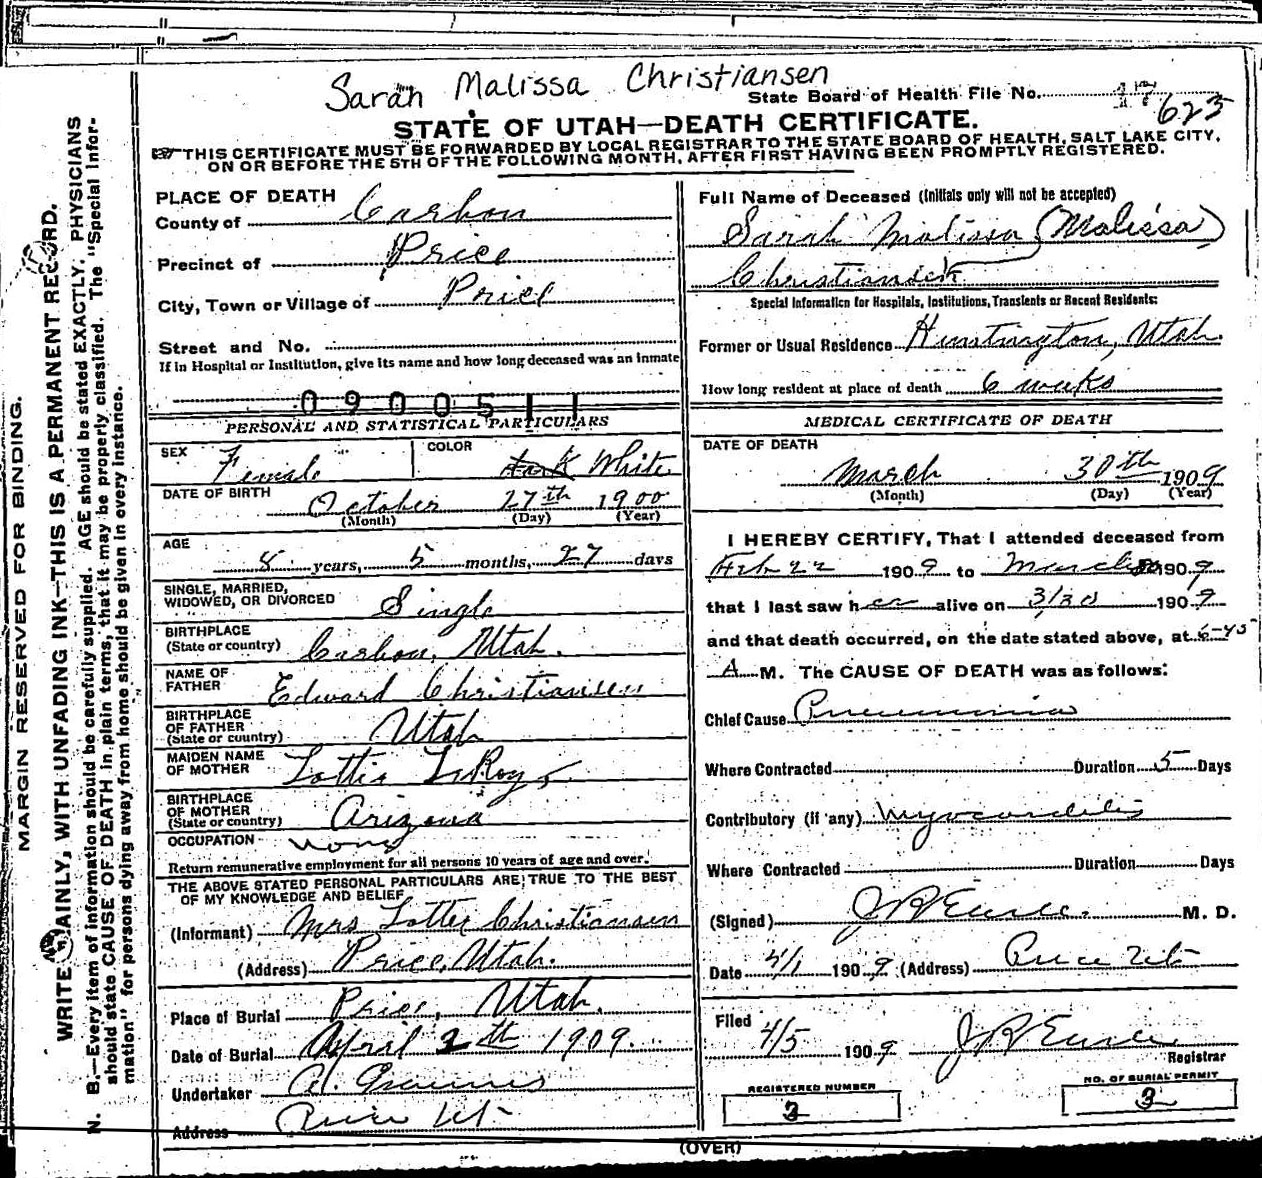 Sarah Malissa Christiansen
State Board of Health File No. 17
623
STATE OF UTAH—DEATH CERTIFICATE.
☞ THIS CERTIFICATE MUST BE FORWARDED BY LOCAL REGISTRAR TO THE STATE BOARD OF HEALTH, SALT LAKE CITY,
ON OR BEFORE THE 5TH OF THE FOLLOWING MONTH, AFTER FIRST HAVING BEEN PROMPTLY REGISTERED.
MARGIN RESERVED FOR BINDING.
WRITE PLAINLY, WITH UNFADING INK—THIS IS A PERMANENT RECORD.
N. B.—Every item of information should be carefully supplied. AGE should be stated EXACTLY. PHYSICIANS
should state CAUSE OF DEATH in plain terms, that it may be properly classified. The "Special Infor-
mation" for persons dying away from home should be given in every instance.
PLACE OF DEATH
County of Carbon
Precinct of Price
City, Town or Village of Price
Street and No.
If in Hospital or Institution, give its name and how long deceased was an inmate
0900511
PERSONAL AND STATISTICAL PARTICULARS
SEX Female COLOR White
DATE OF BIRTH October 27th 1900
(Month) (Day) (Year)
AGE 8 years, 5 months, 27 days
SINGLE, MARRIED,
WIDOWED, OR DIVORCED Single
BIRTHPLACE
(State or country) Carbon, Utah.
NAME OF
FATHER Edward Christiansen
BIRTHPLACE
OF FATHER
(State or country) Utah
MAIDEN NAME
OF MOTHER Lottie LeRoy
BIRTHPLACE
OF MOTHER
(State or country) Arizona
OCCUPATION none
Return remunerative employment for all persons 10 years of age and over.
THE ABOVE STATED PERSONAL PARTICULARS ARE TRUE TO THE BEST
OF MY KNOWLEDGE AND BELIEF
(Informant) Mrs Lottie Christiansen
(Address) Price, Utah.
Place of Burial Price, Utah.
Date of Burial April 2th 1909.
Undertaker A. Grames
Address Price Ut
Full Name of Deceased (Initials only will not be accepted)
Sarah Malissa (Malissa)
Christiansen
Special Information for Hospitals, Institutions, Transients or Recent Residents:
Former or Usual Residence Huntington, Utah.
How long resident at place of death 6 weeks
MEDICAL CERTIFICATE OF DEATH
DATE OF DEATH
March 30th 1909
(Month) (Day) (Year)
I HEREBY CERTIFY, That I attended deceased from
Feb 22 1909 to March 30 1909
that I last saw her alive on 3/30 1909
and that death occurred, on the date stated above, at 6-45
A M. The CAUSE OF DEATH was as follows:
Chief Cause Pneumonia
Where Contracted Duration 5 Days
Contributory (if any) Myocarditis
Where Contracted Duration Days
(Signed) J R M. D.
Date 4/1 1909 (Address) Price Utah
Filed
4/5 1909 J R
Registrar
REGISTERED NUMBER
3
NO. OF BURIAL PERMIT
3
(OVER)